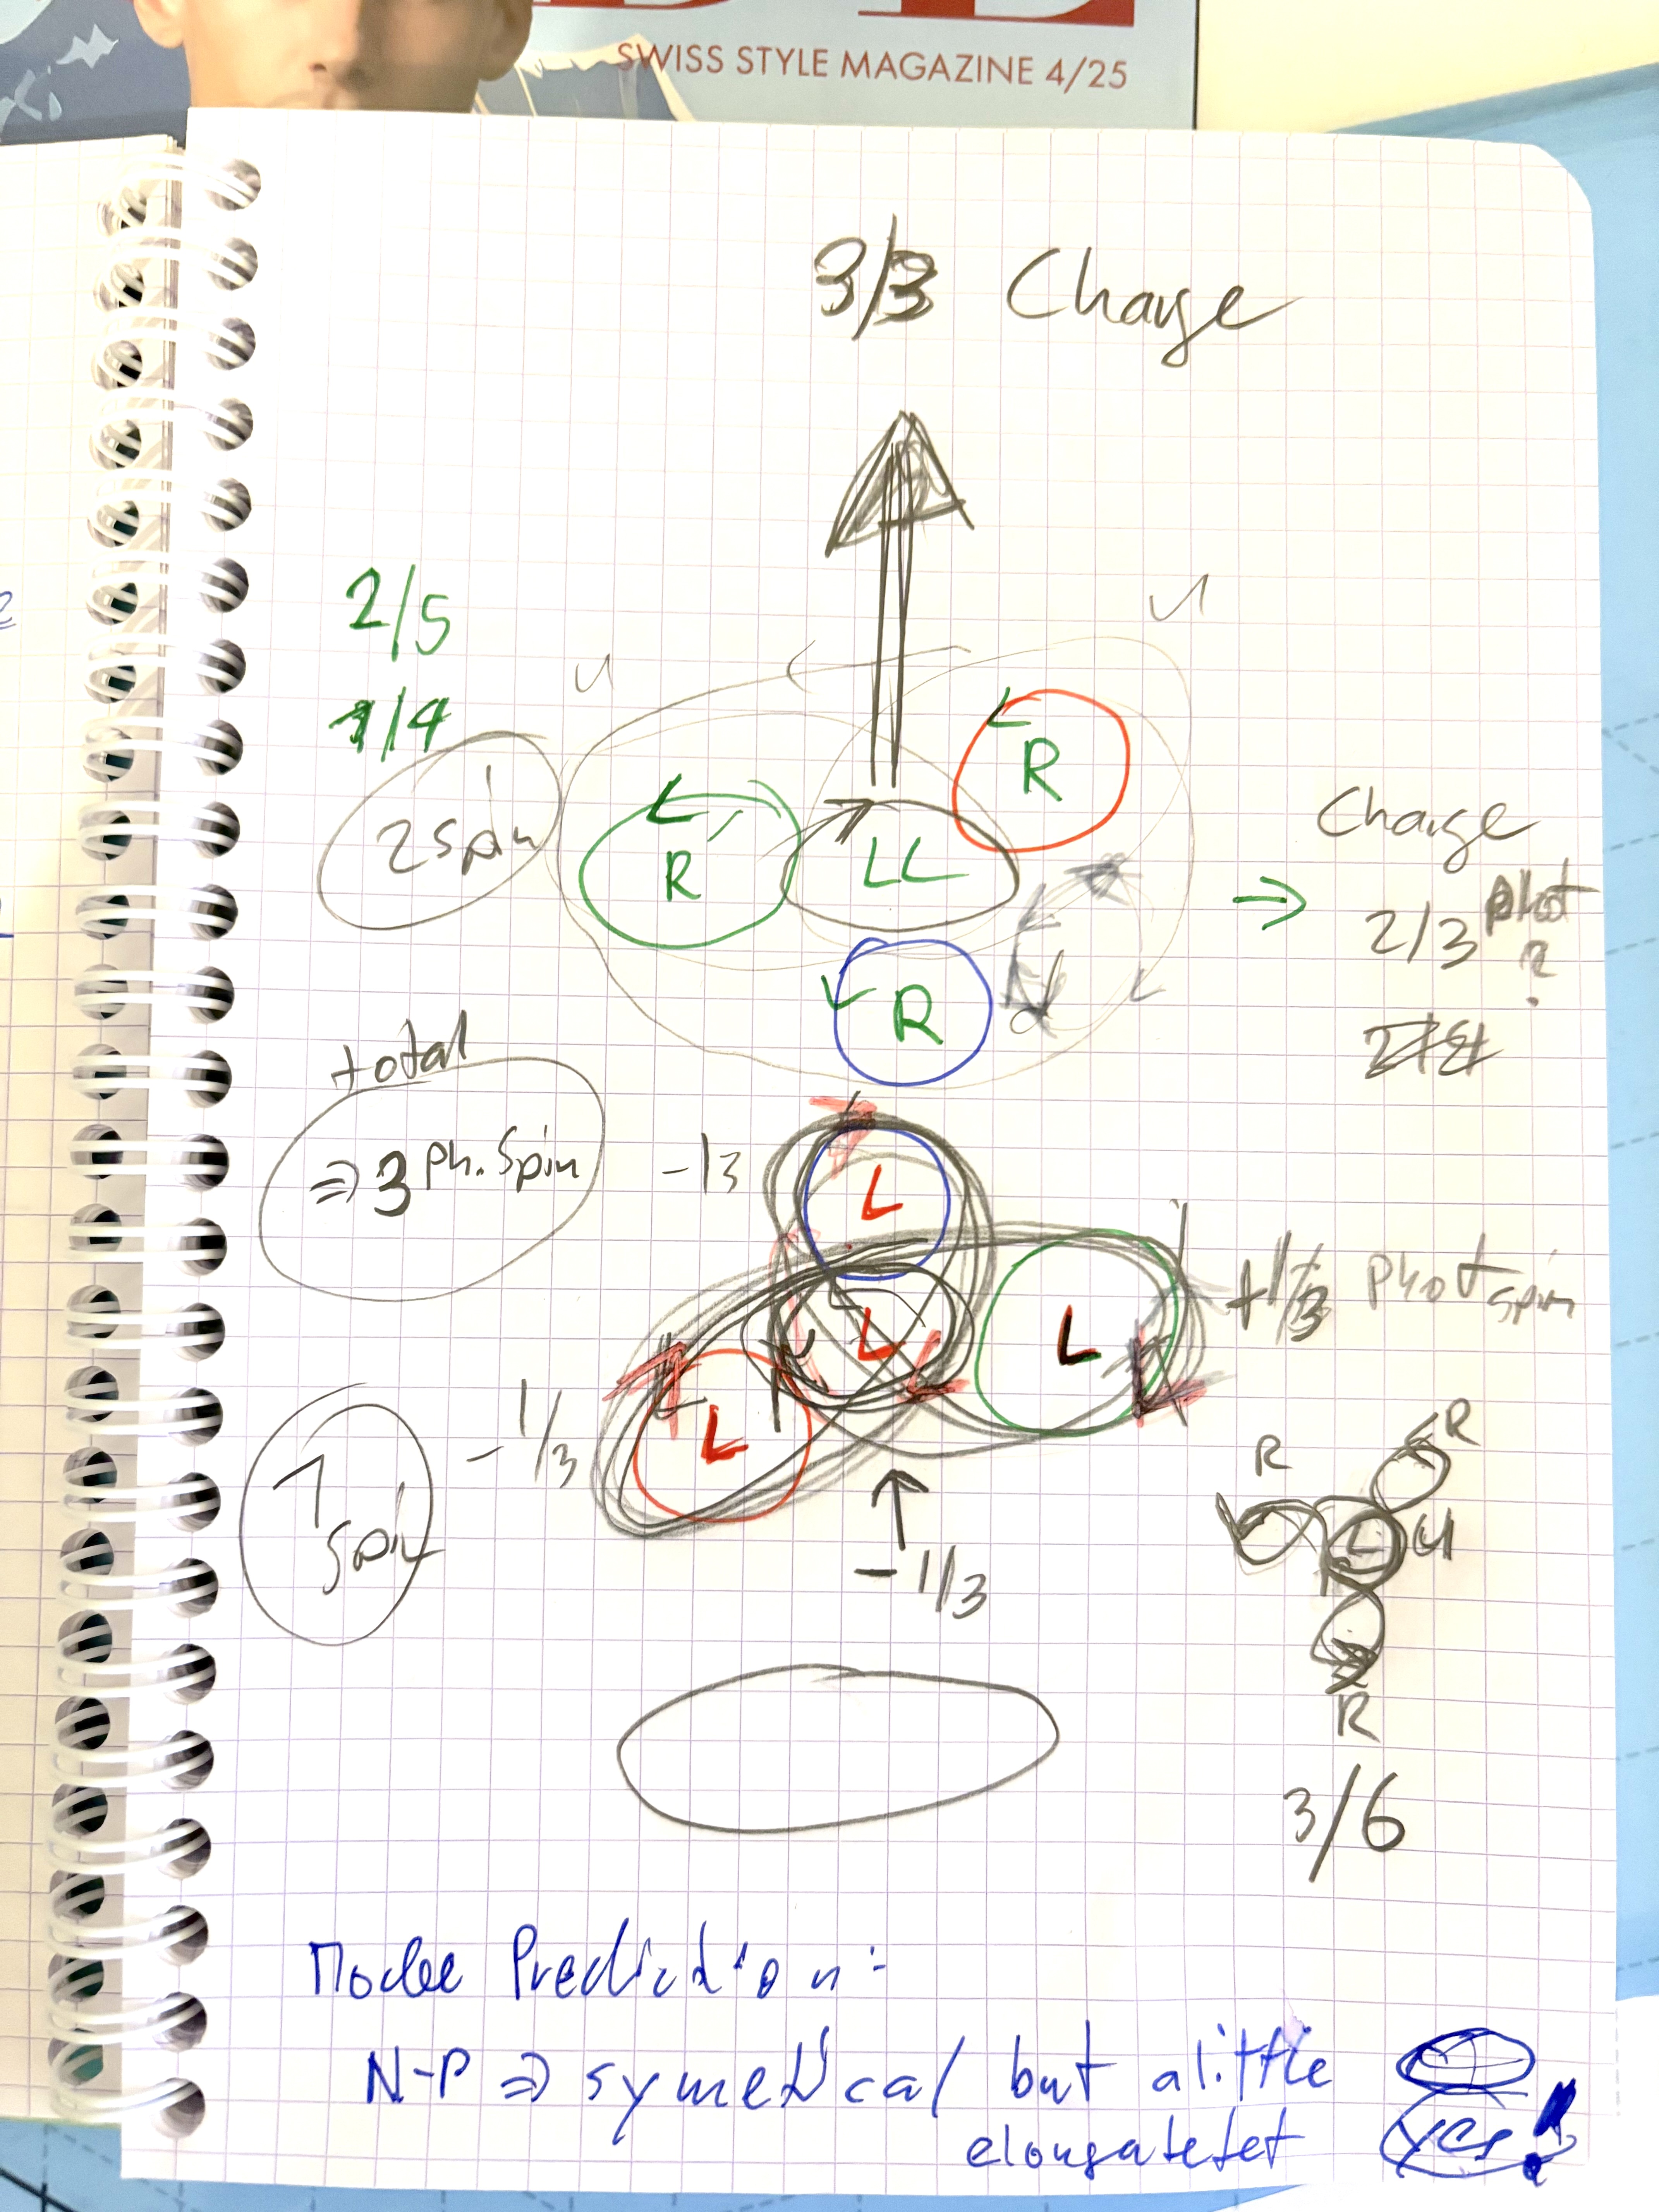 SWISS STYLE MAGAZINE 4/25
3/3 Charge
2/5
1/4
u
u
R
2 spin
R
LL
Charge
2/3 phot
?
R
d
L
total
⇒ 3 Ph. Spin
-1/3
L
+1/3 Phot spin
L
L
L
-1/3
1 spin
R
R
L
u
-1/3
R
3/6
Model Prediction:
N-P ⇒ symetrical but a little
elongatetet
yes!